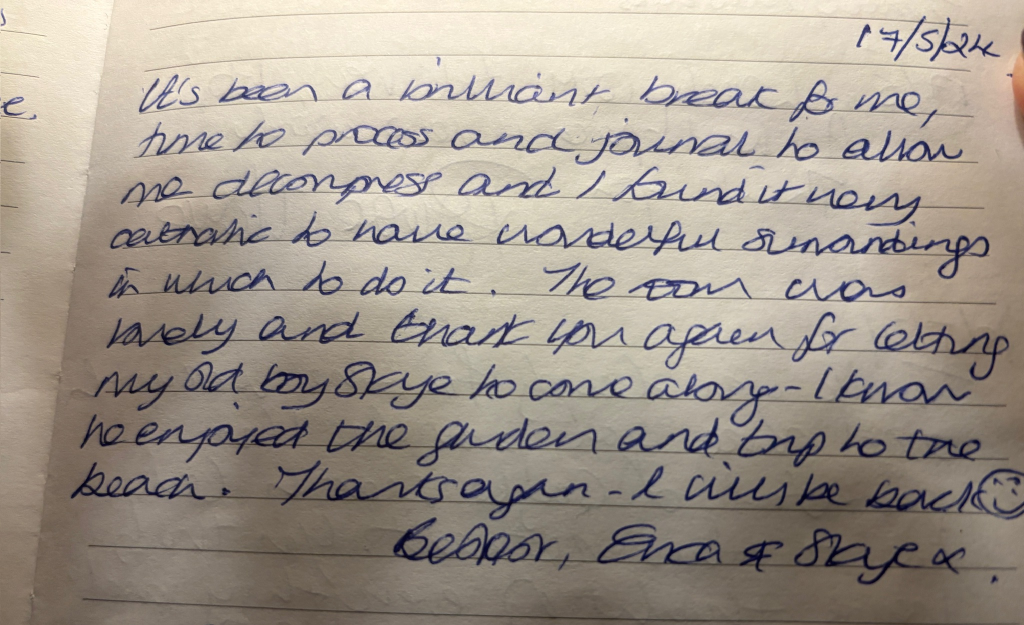 17/5/24
It's been a brilliant break for me,
time to process and journal to allow
me decompress and I found it very
cathartic to have wonderful surroundings
in which to do it. The room was
lovely and thank you again for letting
my old boy Skye to come along - I know
he enjoyed the garden and trip to the
beach. Thanks again - I will be back
Erica & Skye x.
e.